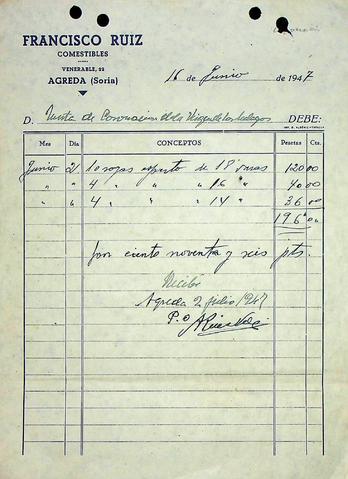 FRANCISCO RUIZ
COMESTIBLES
VENERABLE, 22
AGREDA (Soria)
16 de Junio de 1947
D. Junta de Coronacion de la Virgen de los Milagros DEBE:
Mes Día CONCEPTOS Pesetas Cts.
Junio 2 10 sogas esparto de 18 varas 120 00
" " 4 " " " 16 " 40 00
" " 4 " " " 14 " 36 00
196 00
son ciento noventa y seis pts.
Recibí
Agreda 2 Julio 1947
P.O